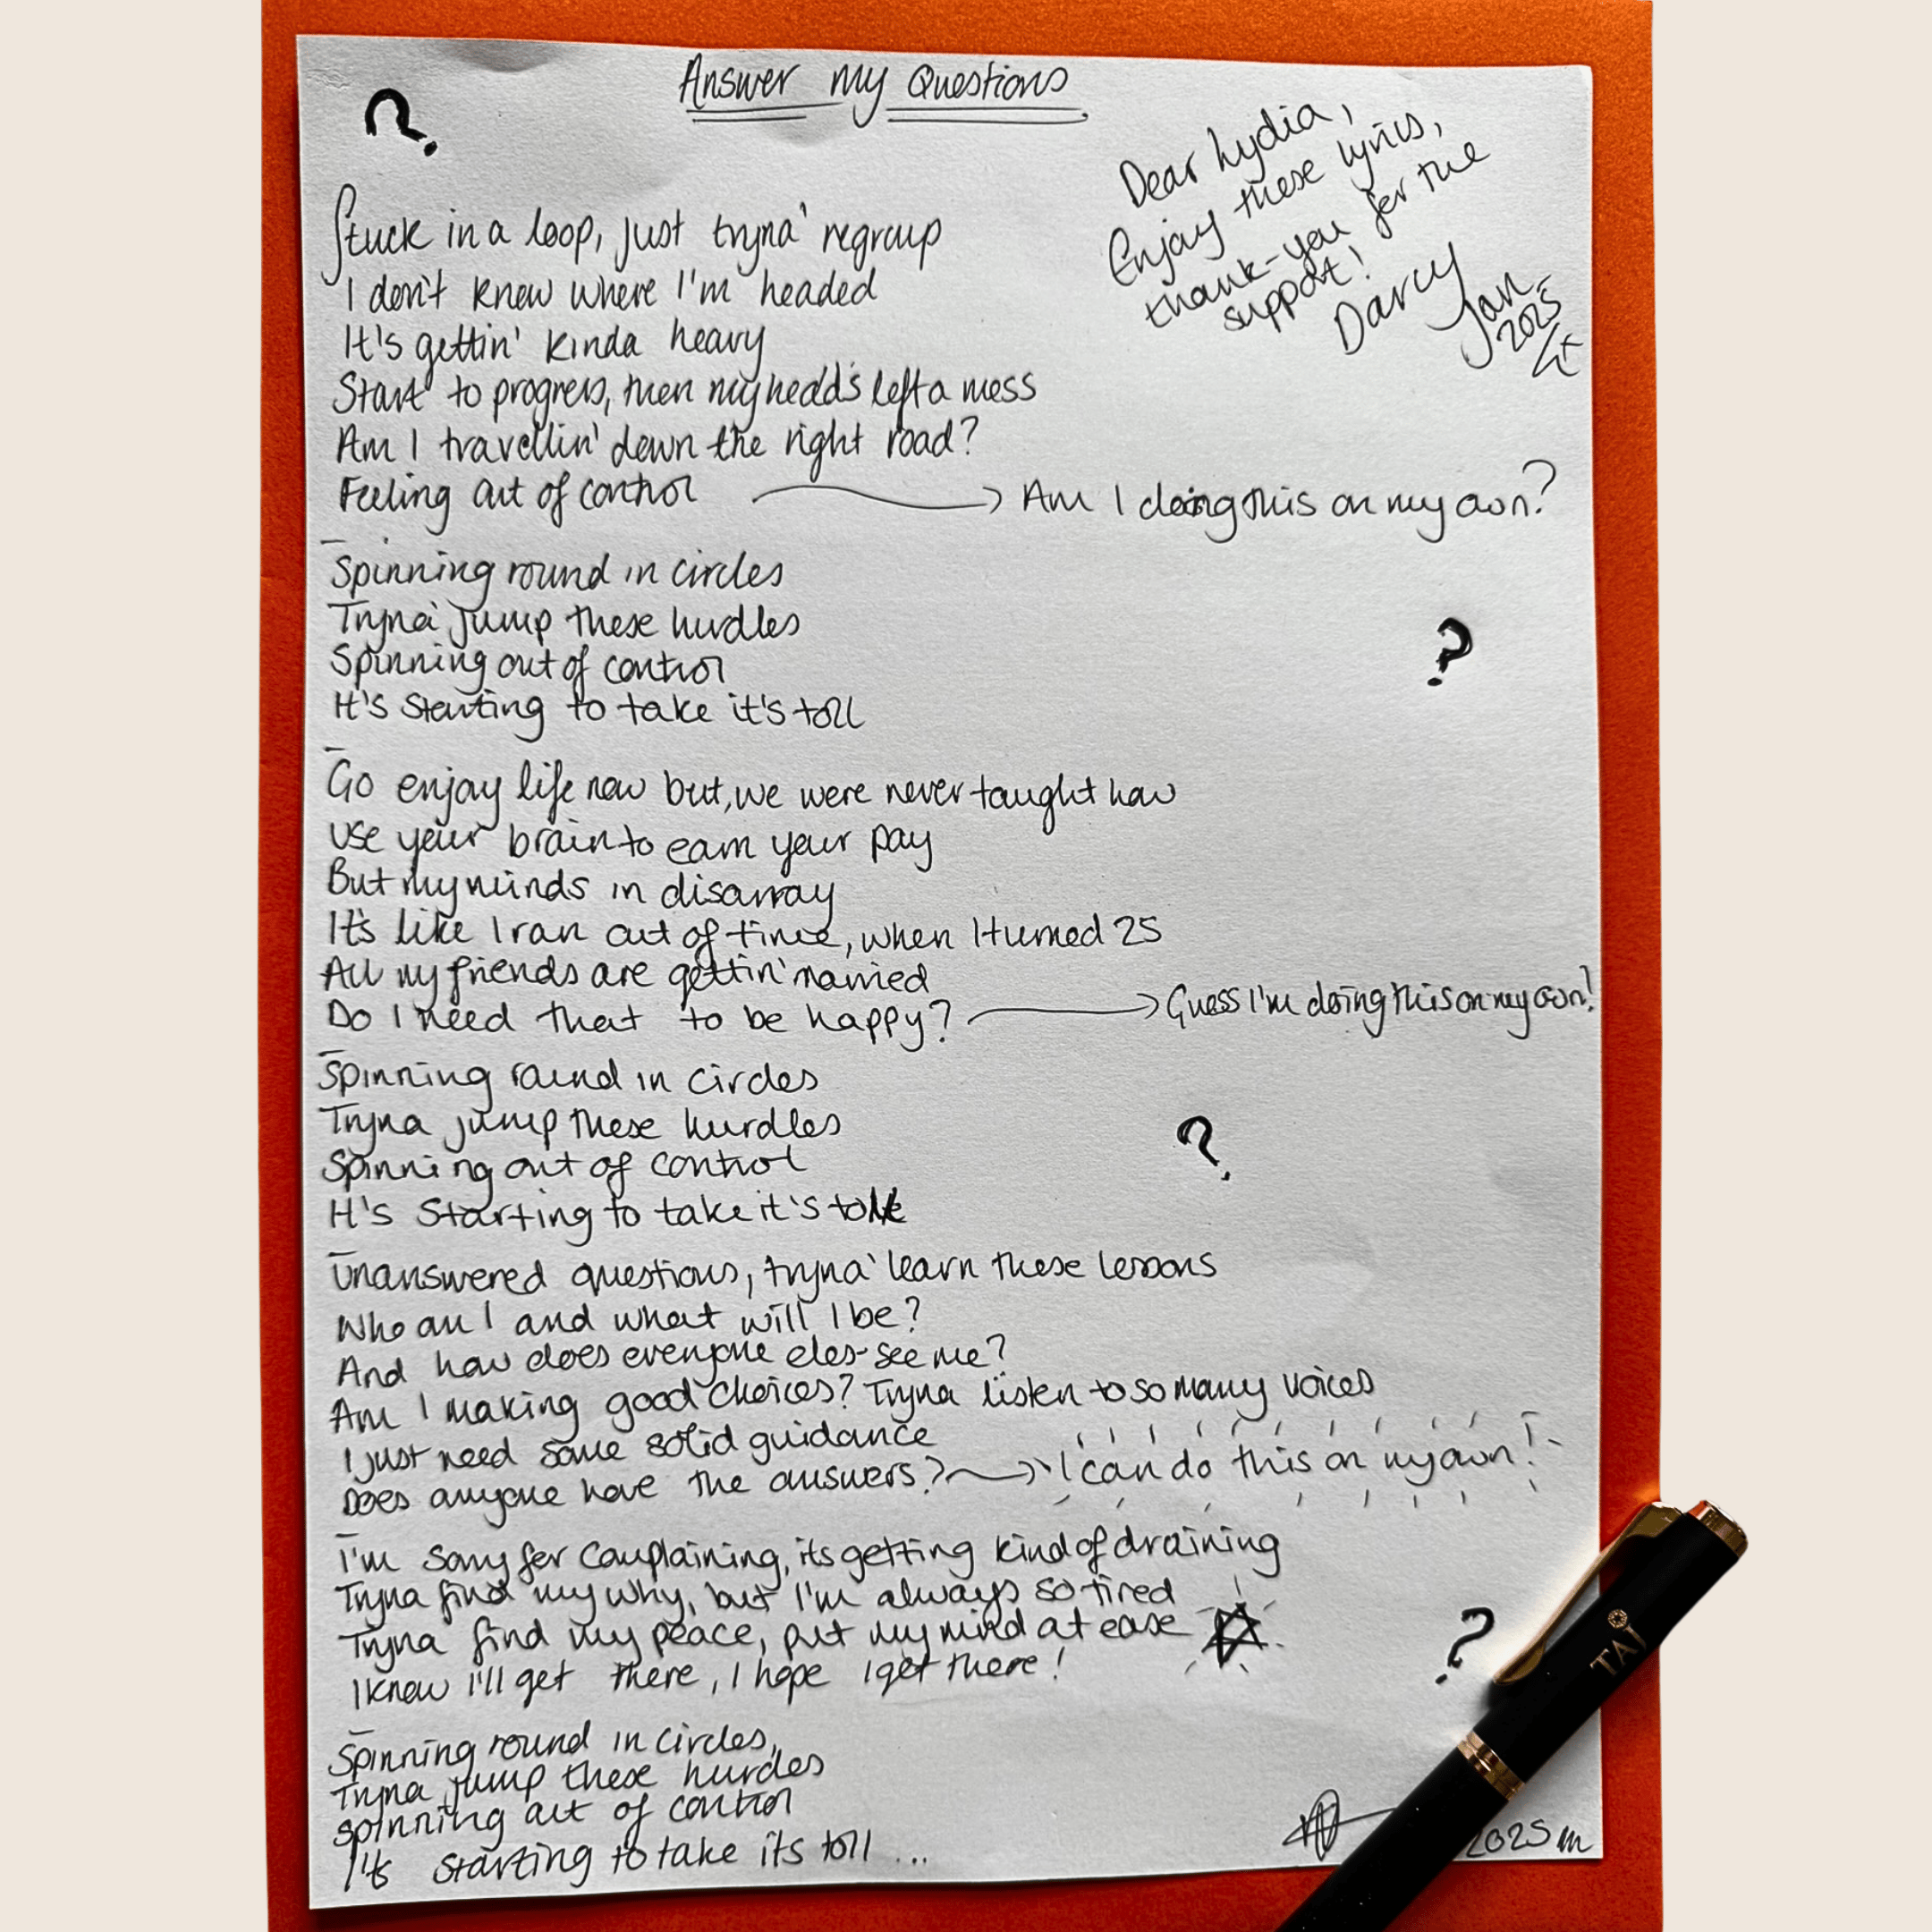 Answer my Questions
?
Dear Lydia,
Enjoy these lyrics,
thank-you for the
support!
Darcy
Jan
2025
Stuck in a loop, just tryna' regroup
I don't know where I'm headed
It's gettin' kinda heavy
Start to progress, then my head's left a mess
Am I travellin' down the right road?
Feeling out of control → Am I doing this on my own?
Spinning round in circles
Tryna' jump these hurdles
Spinning out of control
It's starting to take it's toll
?
Go enjoy life now but, we were never taught how
Use your brain to earn your pay
But my minds in disarray
It's like I ran out of time, when I turned 25
All my friends are gettin' married
Do I need that to be happy? → Guess I'm doing this on my own!
Spinning round in circles
Tryna jump these hurdles
Spinning out of control
It's starting to take it's toll
?
Unanswered questions, tryna' learn these lessons
Who am I and what will I be?
And how does everyone eles see me?
Am I making good choices? Tryna listen to so many voices
I just need some solid guidance
Does anyone have the answers? → I can do this on my own!
I'm sorry for complaining, its getting kind of draining
Tryna find my why, but I'm always so tired
Tryna' find my peace, put my mind at ease
I know I'll get there, I hope I get there!
?
Spinning round in circles,
Tryna jump these hurdles
spinning out of control
It's starting to take its toll...
2025
TAJ